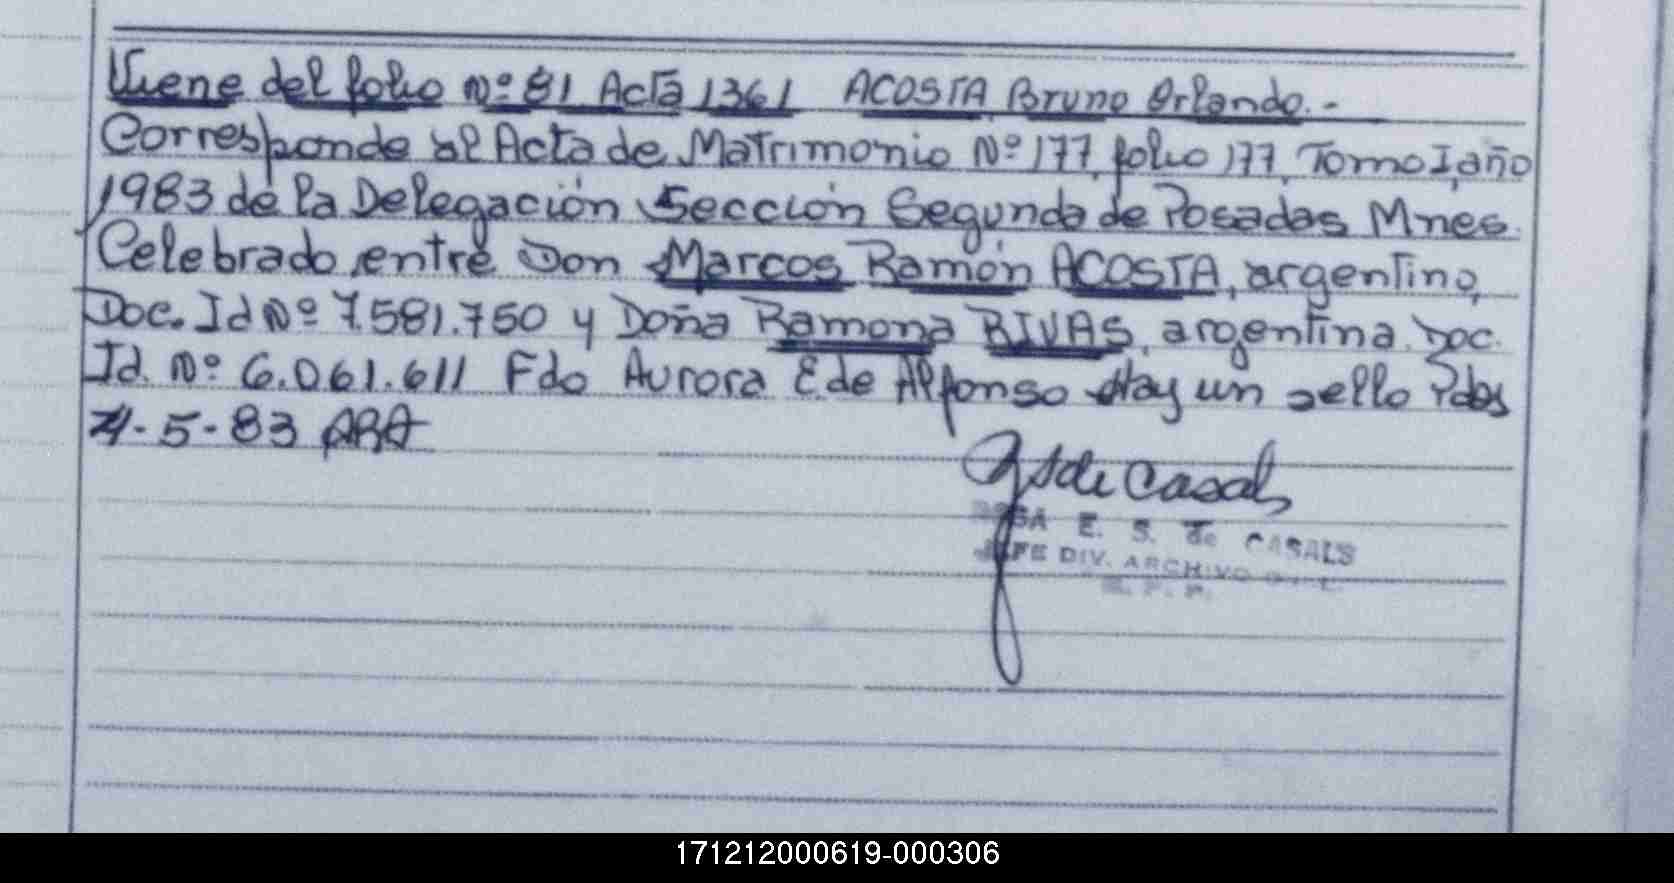 Viene del folio Nº 81 Acta 1361 ACOSTA, Bruno Orlando.-
Corresponde al Acta de Matrimonio Nº 177, folio 177, Tomo I, año
1983 de la Delegación Sección Segunda de Posadas Mnes.
Celebrado entre Don Marcos Ramón ACOSTA, argentino,
Doc. Id Nº 7.581.750 y Doña Ramona RIVAS, argentina. Doc.
Id. Nº 6.061.611 Fdo Aurora E de Alfonso Hay un sello Pdas
-5-83
de Casals
ROSA E. S. de CASALS
JEFE DIV. ARCHIVO GRAL.
R. P. P.
171212000619-000306